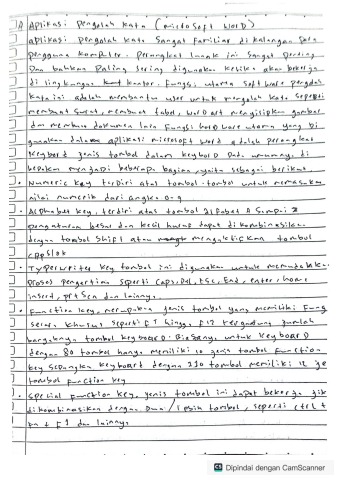 A Aplikasi Pengolah Kata (Microsoft Word)
Aplikasi Pengolah Kata Sangat Familiar di kalangan Para
Pengguna Komputer. Perangkat lunak ini Sangat Penting
Dan bahkan Paling Sering digunakan ketika akan bekerja
di lingkungan kantor. Fungsi utama Software pengolah
kata ini adalah membantu user untuk mengolah kata Seperti
membuat Surat, membuat tabel, WordArt mengisipkan gambar
dan membuka dokumen lain Fungsi keyboard utama yang Di
gunakan dalam aplikasi microsoft word adalah perangkat
Keyboard jenis tombol dalam keyboard Pada umumnya di
bedakan menjadi beberapa bagian, yaitu sebagai berikut.
• Numeric Key terdiri atas tombol-tombol untuk memasukan
nilai numerik dari angka 0-9
• Alphabet key, terdiri atas tombol alfabet A Sampai Z
pengaturan besar dan kecil huruf dapat di kombinasikan
dengan tombol Shift atau mengaktifkan tombol
CAPSlok
• Typewriter key tombol ini digunakan untuk memudahkan
proses pengetikan Seperti Caps, Del, ESC, End, enter, home
insert, prt Scn dan lainnya.
• Function key, merupakan jenis tombol yang memiliki Fung
secara khusus Seperti F1 hingga F12 tergantung jumlah
banyaknya tombol keyboard. Biasanya untuk keyboard
dengan 80 tombol hanya memiliki 10 jenis tombol Function
key Sedangkan keyboard dengan tombol memiliki 12 je
tombol function key
• special function key, jenis tombol ini dapat bekerja jik
dikombinasikan dengan Dua / lebih tombol, seperti ctrl +
+ F1 dan lainnya
CS Dipindai dengan CamScanner